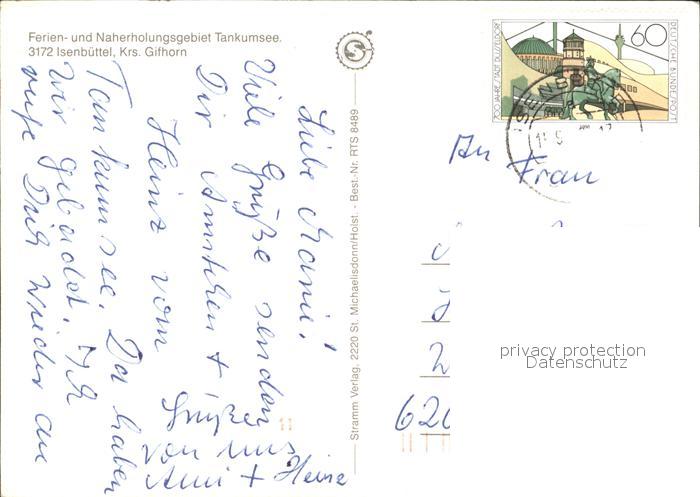 Ferien- und Naherholungsgebiet Tankumsee.
3172 Isenbüttel, Krs. Gifhorn
Liebe
Viele Grüße senden
Dir + 
Heinz vom
Tankumsee. Da haben
wir gebadet. Ich
rufe Dich wieder an
Grüße
von uns
+ Heinz
Stramm Verlag, 2220 St. Michaelisdonn/Holst. - Best. Nr. RTS 8489
700 JAHRE STADT DÜSSELDORF
60
DEUTSCHE BUNDESPOST
An Frau
62
privacy protection
Datenschutz